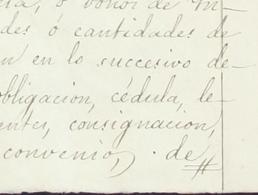 ó bonor de in-
des ó cantidades de
n en lo succesivo de-
obligacion, cédula, le-
enter, consignacion,
convenio, de